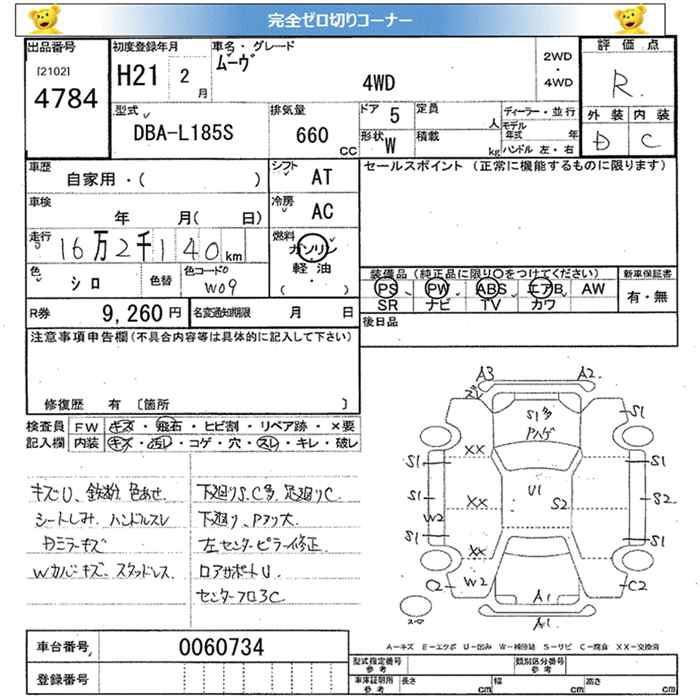 完全ゼロ切りコーナー
出品番号 [2102] 4784
初度登録年月 H21 2月
車名・グレード ムーヴ 4WD
2WD・4WD
評価点 R
型式 DBA-L185S
排気量 660 CC
ドア 5
形状 W
定員 人
積載 kg
ディーラー・並行
モデル年式 年
ハンドル 左・右
外装 D
内装 C
車歴 自家用・( )
シフト AT
セールスポイント (正常に機能するものに限ります)
車検 年 月( 日)
冷房 AC
走行 16万2千140km
燃料 ガソリン 軽油 ( )
色 シロ
色替
色コードNo W09
装備品(純正品に限り○をつけてください)
PS PW ABS エアB AW
SR ナビ TV カワ
新車保証書 有・無
R券 9,260円
名変通知期限 月 日
後日品
注意事項申告欄(不具合内容等は具体的に記入して下さい)
修復歴 有 〔箇所 〕
検査員記入欄
FW キズ・飛石・ヒビ割・リペア跡・×要
内装 キズ・汚レ・コゲ・穴・スレ・キレ・破レ
キズU、鉄粉、色あせ
シートしみ、ハンドルスレ
Dミラーキズ
Wカバーキズ、スタッドレス
下廻りS.C多 足廻りC
下廻り、Pフッ大
左センターピラー修正
ロアサポートU
センターフロアC
A3 A2
S1多 Pハゲ
S1
XX
S1 S1
S1 XX U1 S2 S2
W2
S1 S1
XX
C2 W2 A1 C2
A1
スペア
A-キズ E-エクボ U-凹み W-補修跡 S-サビ C-腐食 XX-交換済
車台番号 0060734
登録番号
型式指定番号 参考
類別区分番号 参考
車庫証明所 参考 長さ cm 幅 cm 高さ cm